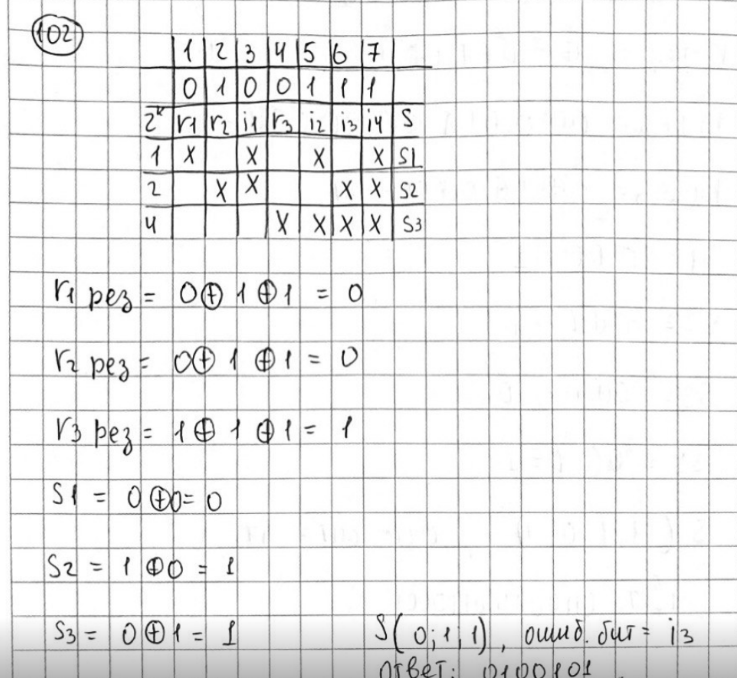 102
1 2 3 4 5 6 7
0 1 0 0 1 1 1
2ᵏ r1 r2 i1 r3 i2 i3 i4 S
1 X X X X S1
2 X X X X S2
4 X X X X S3
r1 рез = 0 ⊕ 1 ⊕ 1 = 0
r2 рез = 0 ⊕ 1 ⊕ 1 = 0
r3 рез = 1 ⊕ 1 ⊕ 1 = 1
S1 = 0 ⊕ 0 = 0
S2 = 1 ⊕ 0 = 1
S3 = 0 ⊕ 1 = 1
S(0;1;1), ошиб. бит = i3
ответ: 0100101